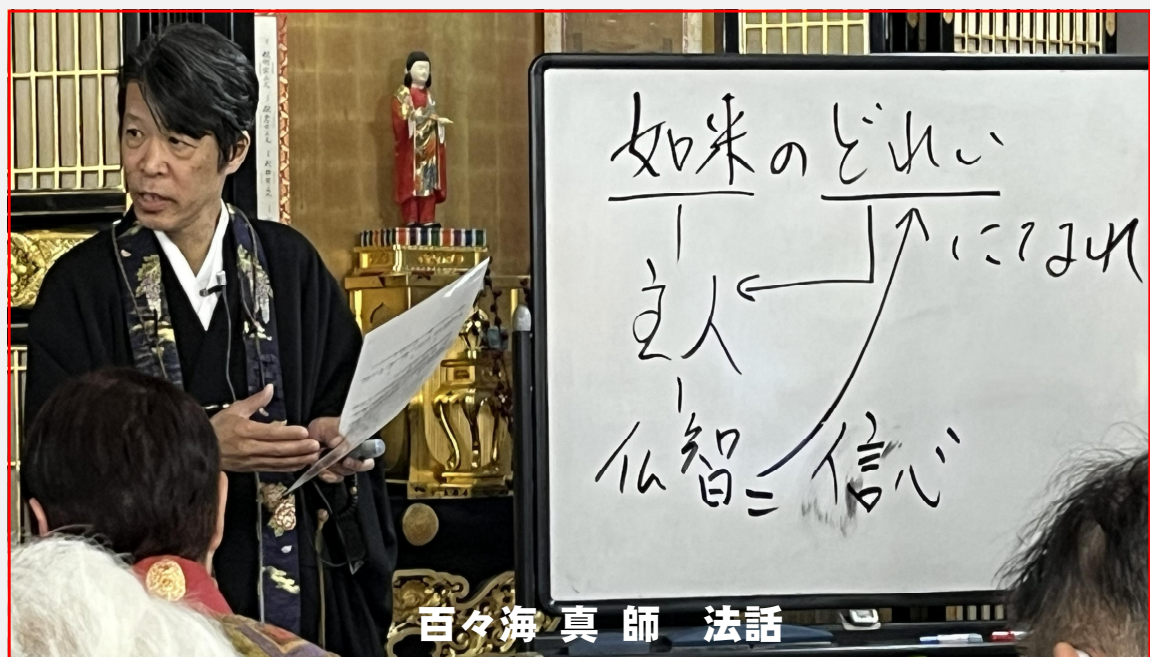 如来のどれい
になれ
主人
仏智=信心
百々海 真 師 法話